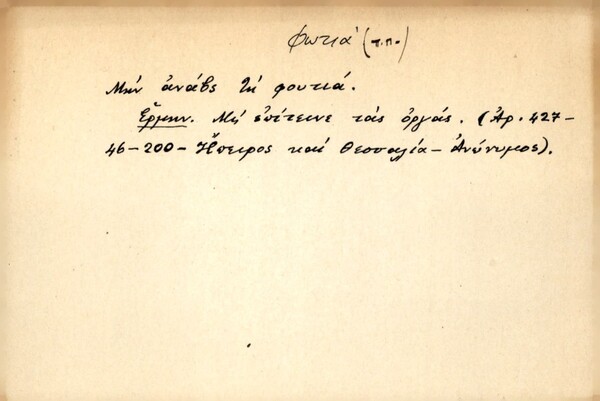 Φωτιά (τ.π.)
Μήν ἀνάβς τή φουτιά.
Ἑρμην. Μή ἐπίτεινε τάς ὀργάς. (Ἀρ. 427-
46-200- Ἤπειρος καί Θεσσαλία - Ἀνώνυμος).